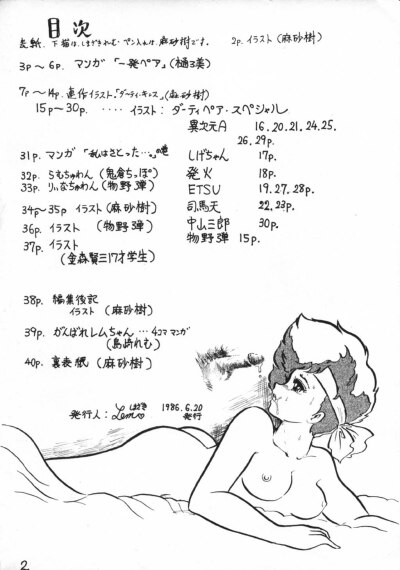 目次
表紙. 下描は, しまざきれむ・ペン入れは, 麻砂樹です。 2p. イラスト (麻砂樹)
3p ～ 6p. マンガ 「一発ペア」 (樋3美)
7p ～ 14p. 連作イラスト.「ダーティ・キッス」(麻砂樹)
15p～30p. ‥‥ イラスト: ダーティペア・スペシャル
異次元A 16. 20. 21. 24. 25. 26. 29p.
しげちゃん 17p.
発火 18p.
ETSU 19. 27. 28p.
司馬天 22. 23p.
中山三郎 30p.
物野弾 15p.
31p. マンガ 「私はさとった…。の巻
32p. らむちゅわん (鬼倉ちっぽ)
33p. りぃなちゅわん (物野弾)
34p～35p イラスト (麻砂樹)
36p. イラスト (物野弾)
37p. イラスト
(金森賢三17才学生)
38p. 編集後記
イラスト (麻砂樹)
39p. がんばれレムちゃん …4コママンガ
(島崎れむ)
40p. 裏表紙 (麻砂樹)
発行人: 1986. 6. 20 発行
2